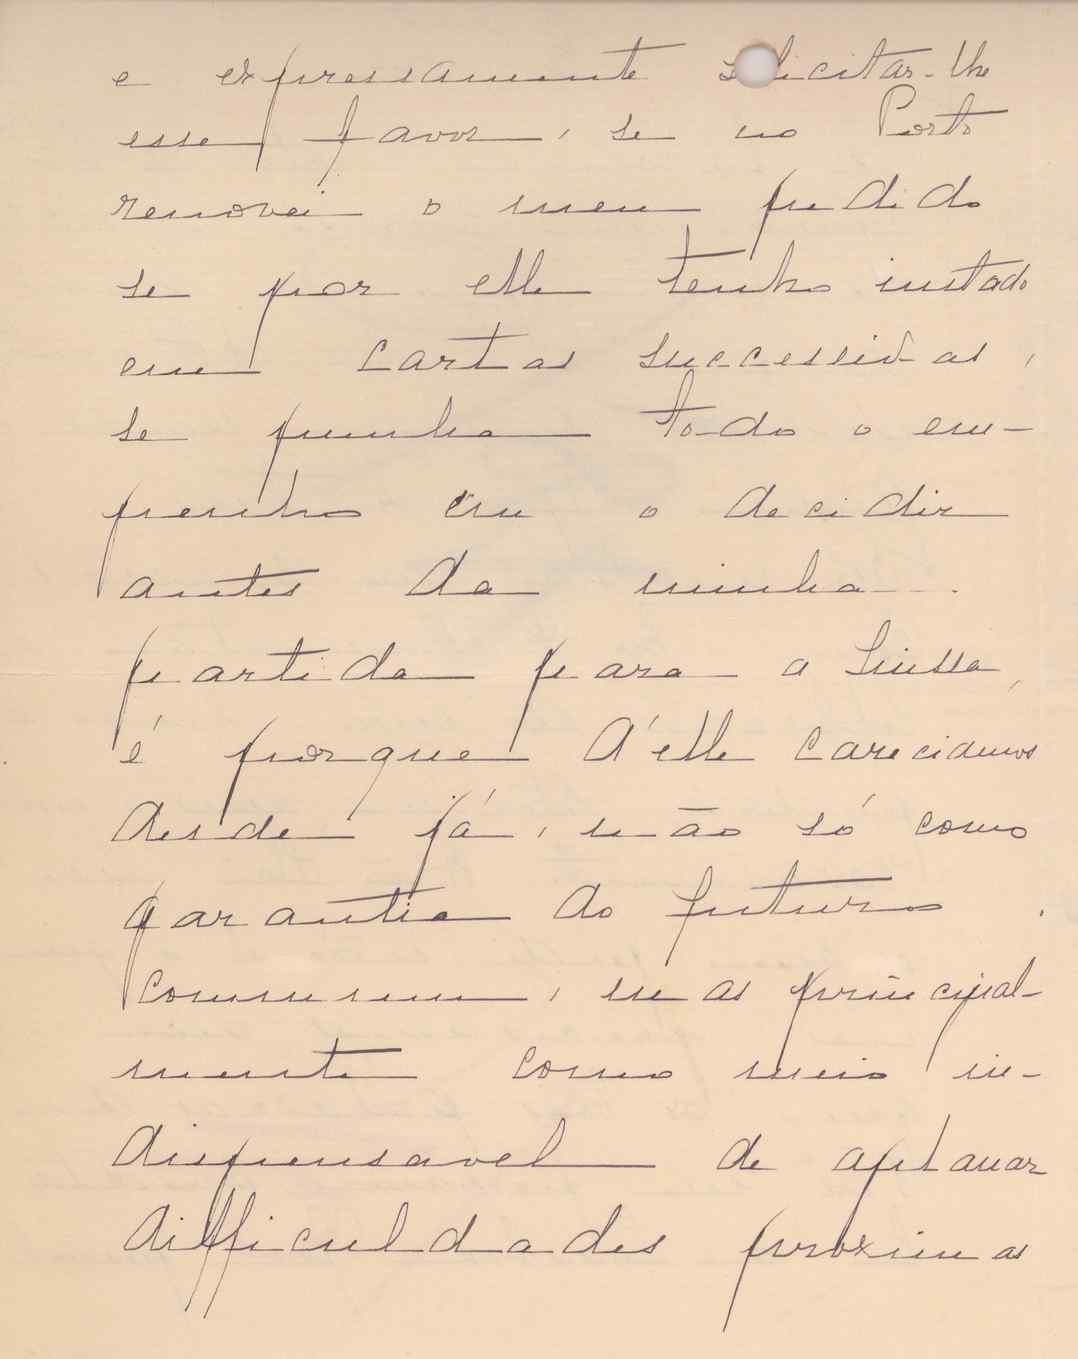 e expressamente solicitar-lhe
esse favor, se no Porto
renovei o meu pedido
se por elle tenho instado
em cartas successivas,
se punha todo o em-
penho em o decidir
antes da minha
partida para a Suissa,
é porque d'elle carecidamos
desde já, não só como
garantia do futuro
commum, mas principal-
mente como meio in-
dispensavel de aplanar
difficuldades proximas